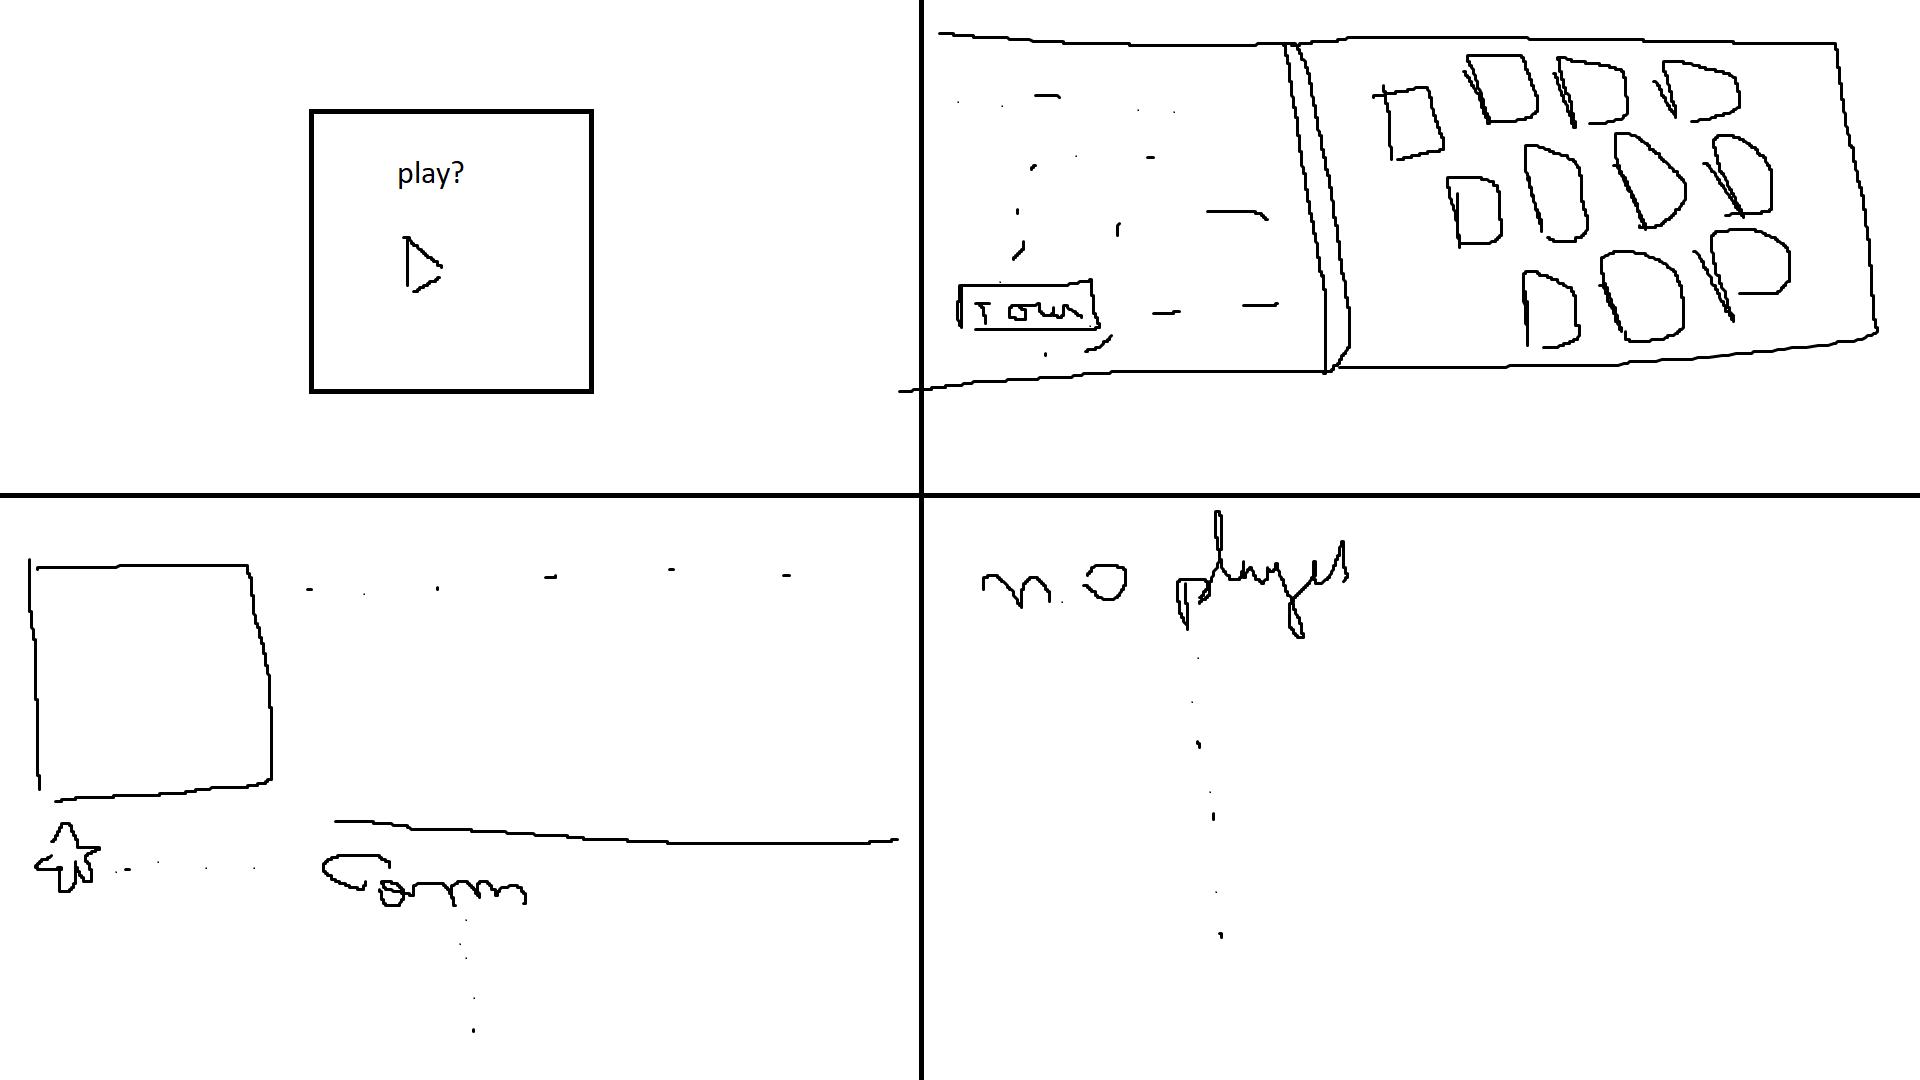 play?
Town
Comm
no played